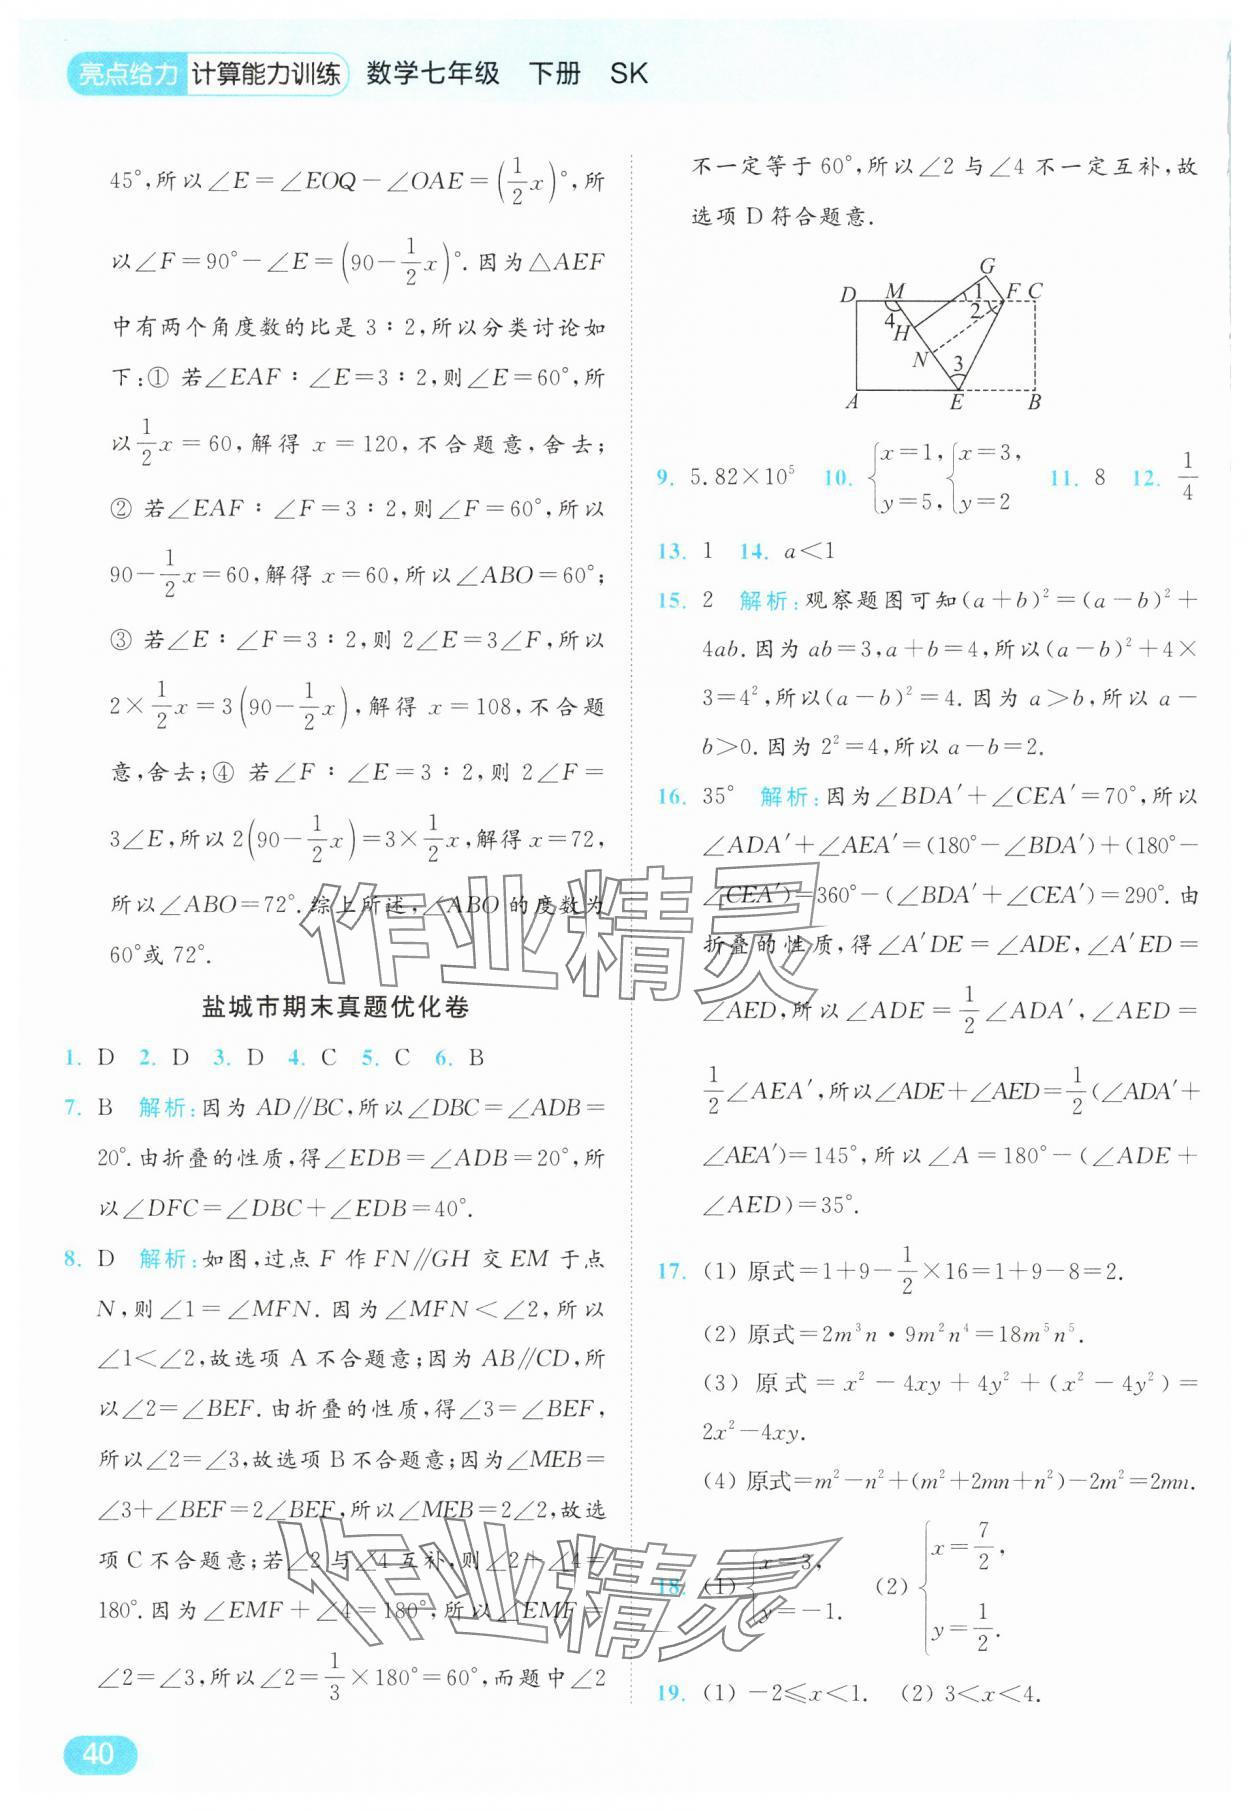 亮点给力 计算能力训练 数学七年级 下册 SK
45°,所以∠E=∠EOQ-∠OAE=(1/2 x)°,所
以∠F=90°-∠E=(90-1/2 x)°.因为△AEF
中有两个角度数的比是3∶2,所以分类讨论如
下:① 若∠EAF∶∠E=3∶2,则∠E=60°,所
以1/2 x=60,解得 x=120,不合题意,舍去;
② 若∠EAF∶∠F=3∶2,则∠F=60°,所以
90-1/2 x=60,解得 x=60,所以∠ABO=60°;
③ 若∠E∶∠F=3∶2,则 2∠E=3∠F,所以
2×1/2 x=3(90-1/2 x),解得 x=108,不合题
意,舍去;④ 若∠F∶∠E=3∶2,则 2∠F=
3∠E,所以 2(90-1/2 x)=3×1/2 x,解得 x=72,
所以∠ABO=72°.综上所述,∠ABO 的度数为
60°或 72°.
盐城市期末真题优化卷
1. D 2. D 3. D 4. C 5. C 6. B
7. B 解析:因为 AD∥BC,所以∠DBC=∠ADB=
20°.由折叠的性质,得∠EDB=∠ADB=20°,所
以∠DFC=∠DBC+∠EDB=40°.
8. D 解析:如图,过点 F 作 FN∥GH 交 EM 于点
N,则∠1=∠MFN.因为∠MFN<∠2,所以
∠1<∠2,故选项 A 不合题意;因为 AB∥CD,所
以∠2=∠BEF.由折叠的性质,得∠3=∠BEF,
所以∠2=∠3,故选项 B 不合题意;因为∠MEB=
∠3+∠BEF=2∠BEF,所以∠MEB=2∠2,故选
项 C 不合题意;若∠2与∠4 互补,则∠2+∠4=
180°.因为∠EMF+∠4=180°,所以∠EMF=
∠2=∠3,所以∠2=1/3×180°=60°,而题中∠2
40
不一定等于 60°,所以∠2 与∠4 不一定互补,故
选项 D 符合题意.
G
D M 1 F C
4 H 2
N 3
A E B
9. 5.82×10⁵ 10. {x=1, y=5, {x=3, y=2 11. 8 12. 1/4
13. 1 14. a<1
15. 2 解析:观察题图可知(a+b)²=(a-b)²+
4ab.因为 ab=3,a+b=4,所以(a-b)²+4×
3=4²,所以(a-b)²=4.因为 a>b,所以 a-
b>0.因为 2²=4,所以 a-b=2.
16. 35° 解析:因为∠BDA′+∠CEA′=70°,所以
∠ADA′+∠AEA′=(180°-∠BDA′)+(180°-
∠CEA′)=360°-(∠BDA′+∠CEA′)=290°.由
折叠的性质,得∠A′DE=∠ADE,∠A′ED=
∠AED,所以∠ADE=1/2∠ADA′,∠AED=
1/2∠AEA′,所以∠ADE+∠AED=1/2(∠ADA′+
∠AEA′)=145°,所以∠A=180°-(∠ADE+
∠AED)=35°.
17. (1) 原式=1+9-1/2×16=1+9-8=2.
(2) 原式=2m³n·9m²n⁴=18m⁵n⁵.
(3) 原式=x²-4xy+4y²+(x²-4y²)=
2x²-4xy.
(4) 原式=m²-n²+(m²+2mn+n²)-2m²=2mn.
18. (1) {x=3, y=-1. (2) {x=7/2, y=1/2.
19. (1) -2≤x<1. (2) 3<x<4.
作业精灵
作业精灵